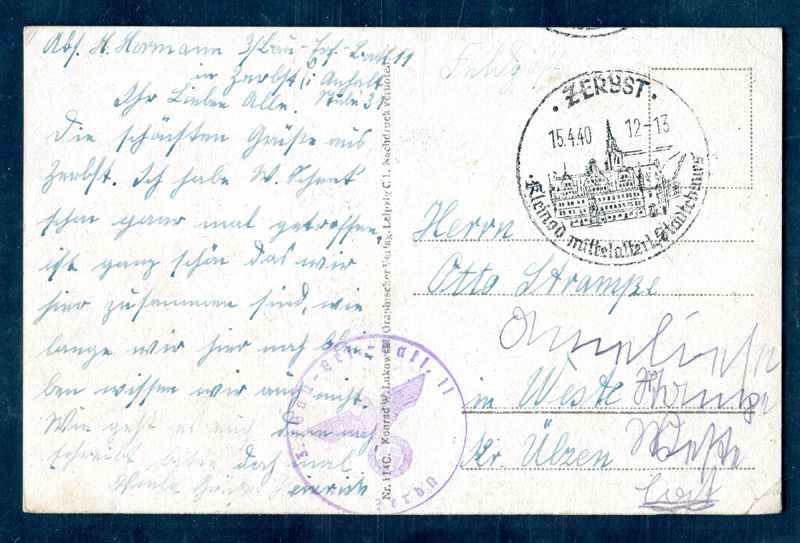 Abs. H. Hermann 3/Bau-Ers.-Batl. 11
in Zerbst i. Anhalt
Stube 31
Ihr Lieben Alle.
Die schönsten Grüße aus
Zerbst. Ich habe W. Schenk
schon paar mal getroffen,
ist ganz schön das wir
hier zusammen sind, wie
lange wir hier noch blei-
ben wissen wir auch nicht.
Wie geht es euch denn
schreibt bitte doch mal
Viele Grüße Heinrich
Nr. 114C. Konrad W. Lukowski, Graphischer Verlag, Leipzig C 1. Nachdruck verboten
3. Bau-Ers.-Batl. 11
Zerbst
Feldpost
ZERBST
15.4.40 12-13
Kleinod mittelalterl. Städtebaues
Herrn
Otto Strampe
Anneliese
in Weste
Kr. Ülzen
Weste